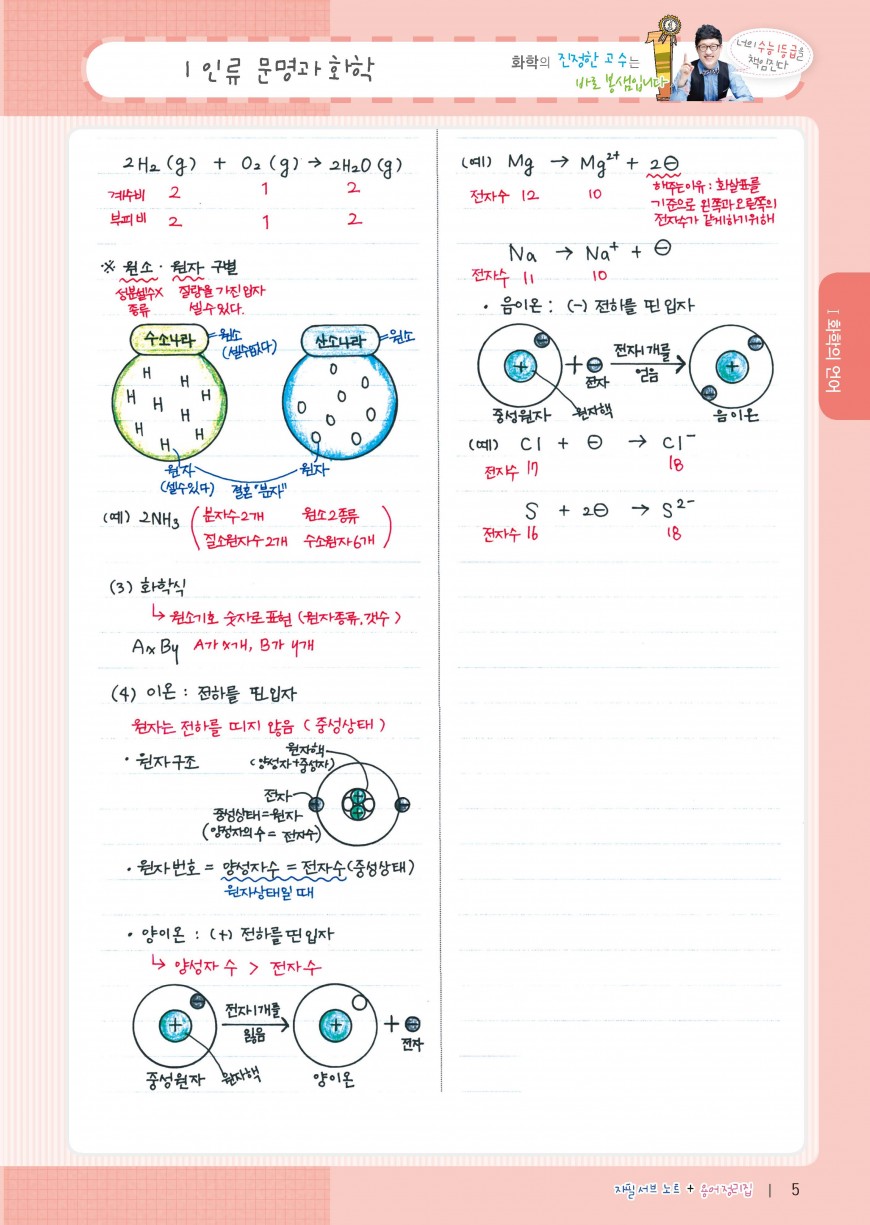 I 인류 문명과 화학
화학의 진정한 고수는
바로 봉샘입니다
너의 수능 1등급을
책임진다
2H₂ (g) + O₂ (g) → 2H₂O (g)
계수비 2 1 2
부피비 2 1 2
※ 원소 · 원자 구별
성분셀수X 질량을 가진 입자
종류 셀수있다.
수소나라 = 원소
(셀수없다)
산소나라 = 원소
H H
H H H
H H
H H
O O
O O
O O O
원자
(셀수있다)
결혼 "분자"
원자
(예) 2NH₃ ( 분자수 2개 원소 2종류
질소원자수 2개 수소원자 6개 )
(3) 화학식
↳ 원소기호 숫자로 표현 (원자종류, 갯수)
AxBy A가 x개, B가 y개
(4) 이온 : 전하를 띤 입자
원자는 전하를 띠지 않음 ( 중성상태 )
· 원자구조
원자핵
(양성자+중성자)
전자
중성상태=원자
(양성자의 수 = 전자수)
· 원자번호 = 양성자수 = 전자수(중성상태)
원자상태일 때
· 양이온 : (+) 전하를 띤 입자
↳ 양성자 수 > 전자 수
전자 1개를
잃음
+ 전자
중성원자 원자핵 양이온
(예) Mg → Mg²⁺ + 2⊖
전자수 12 10
해주는이유 : 화살표를
기준으로 왼쪽과 오른쪽의
전자수가 같게하기위해
Na → Na⁺ + ⊖
전자수 11 10
· 음이온 : (-) 전하를 띤 입자
전자 1개를
얻음
+ 전자
중성원자 원자핵 음이온
(예) Cl + ⊖ → Cl⁻
전자수 17 18
S + 2⊖ → S²⁻
전자수 16 18
I 화학의 언어
자필 서브 노트 + 용어정리집 | 5